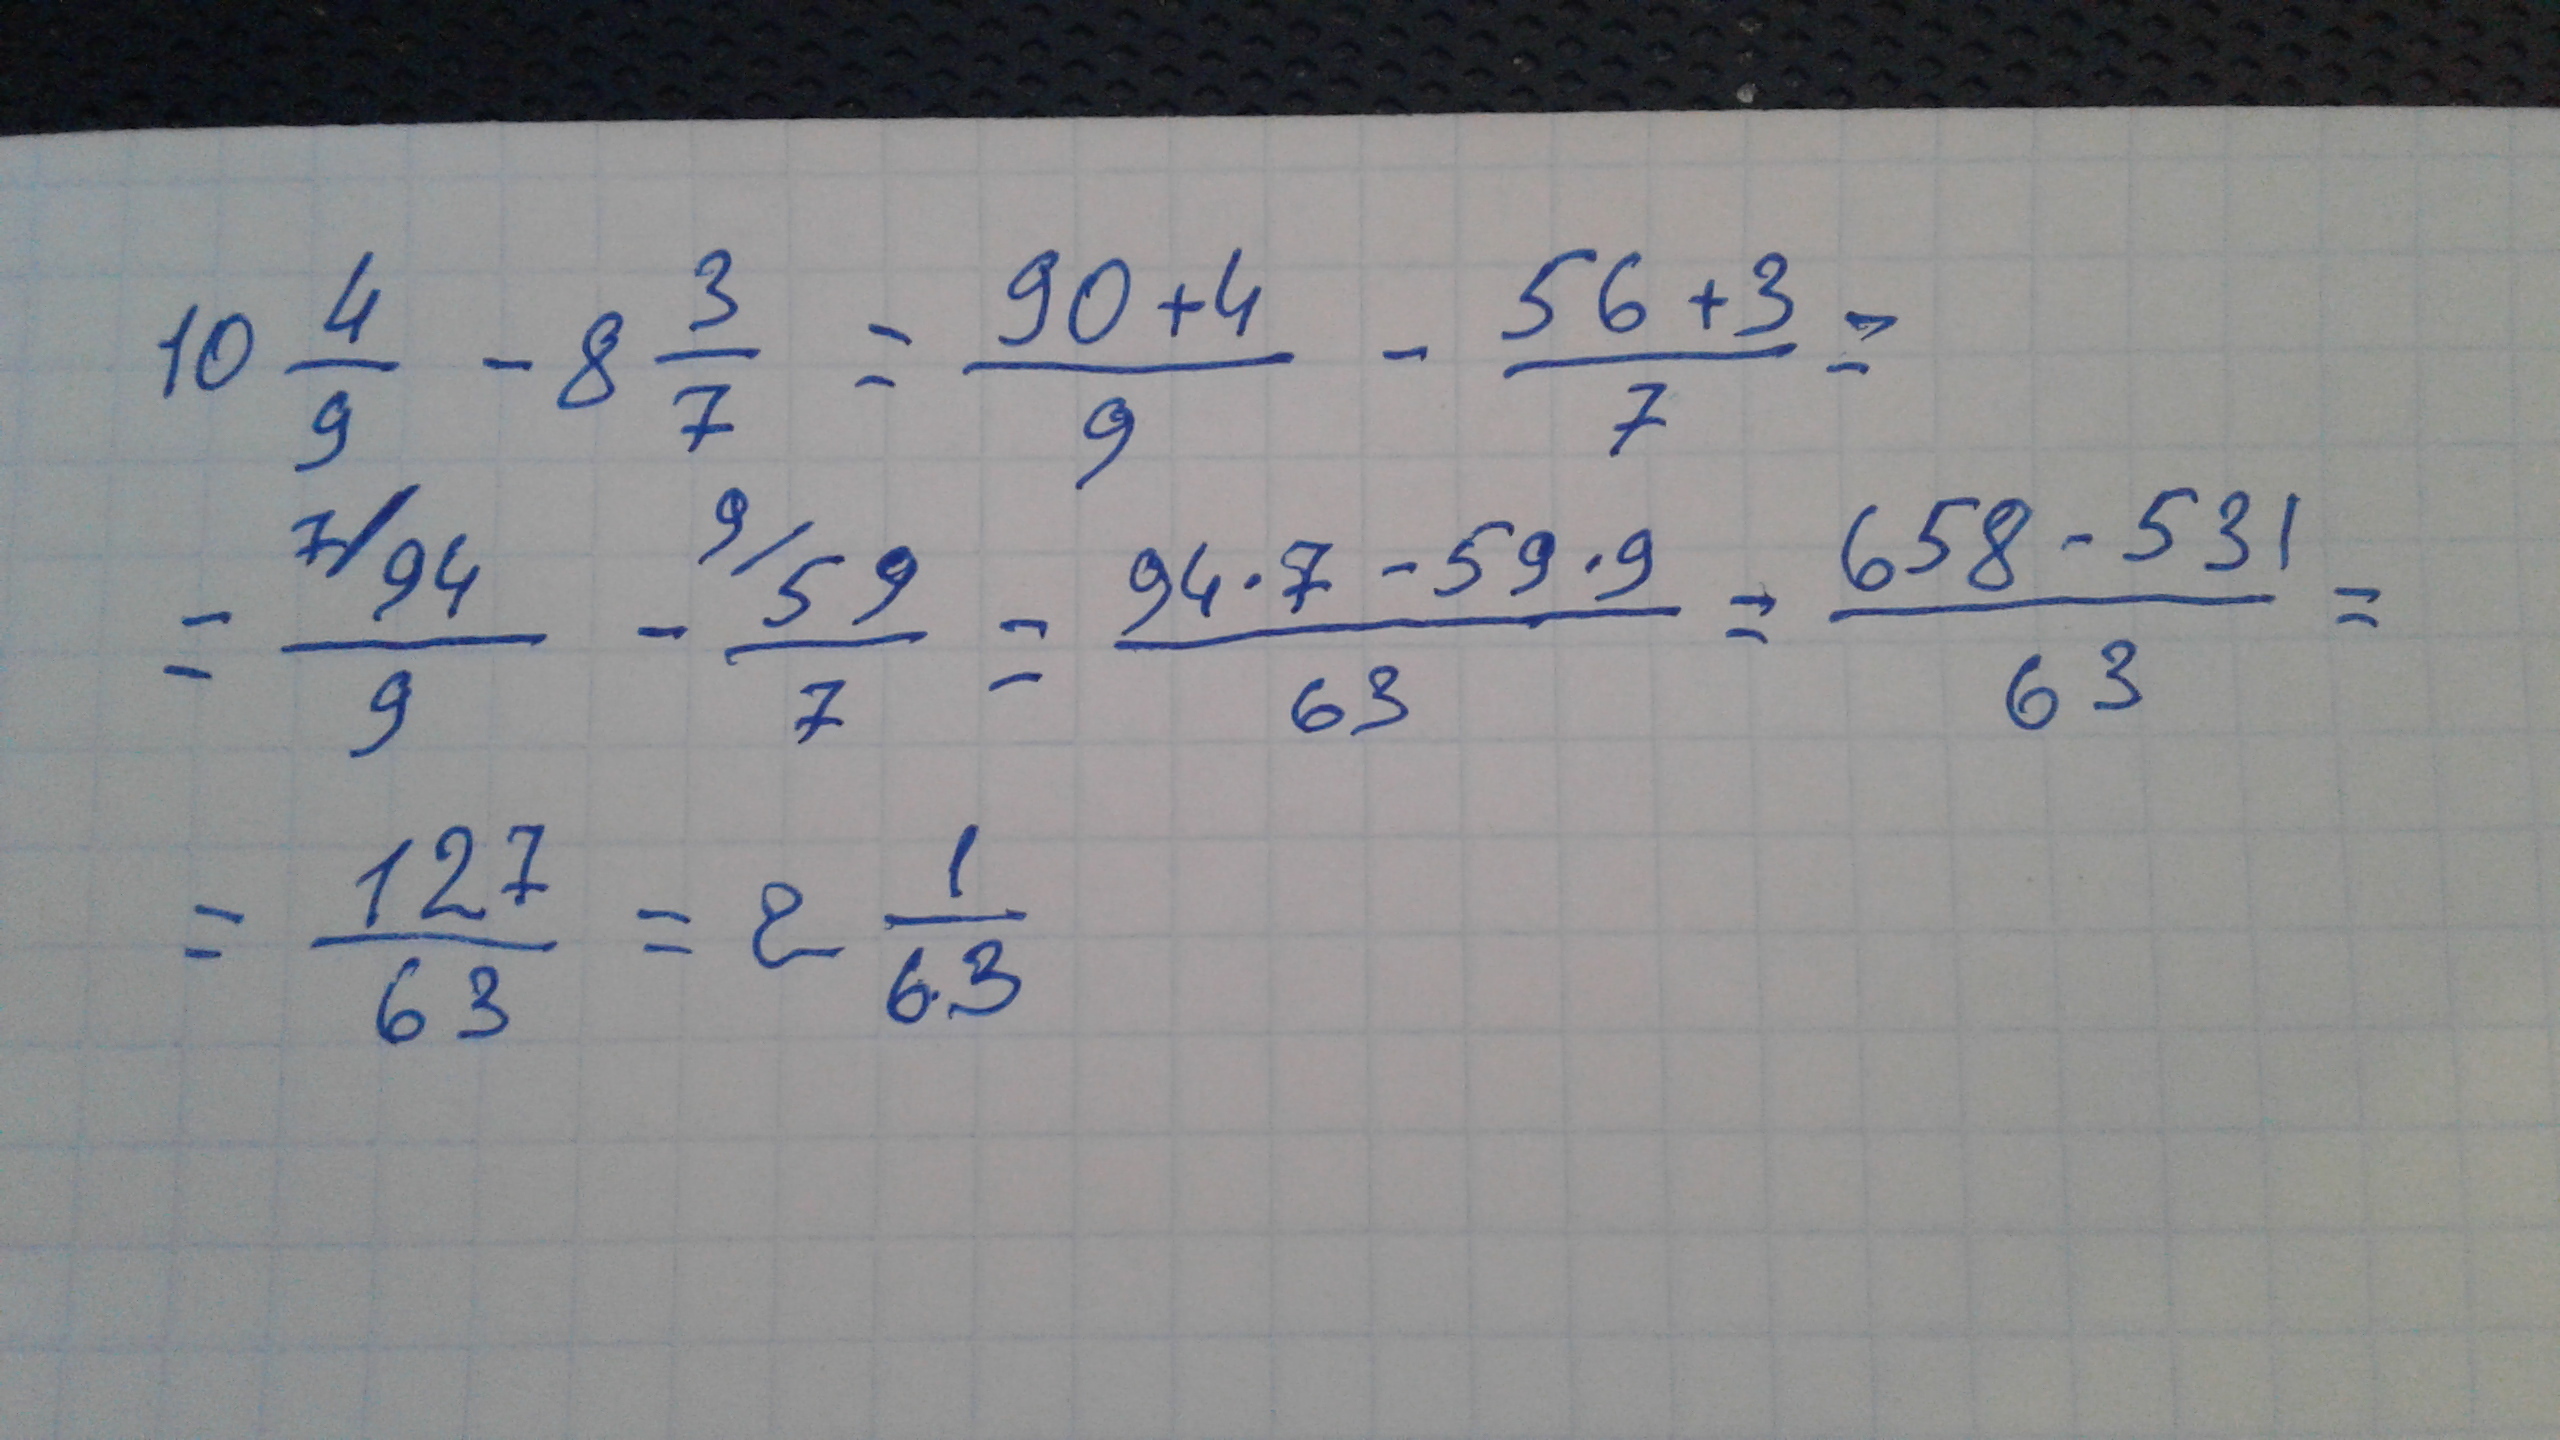 10 4/9 - 8 3/7 = (90+4)/9 - (56+3)/7 =
= 7/ 94/9 - 9/ 59/7 = (94·7 - 59·9)/63 = (658 - 531)/63 =
= 127/63 = 2 1/63